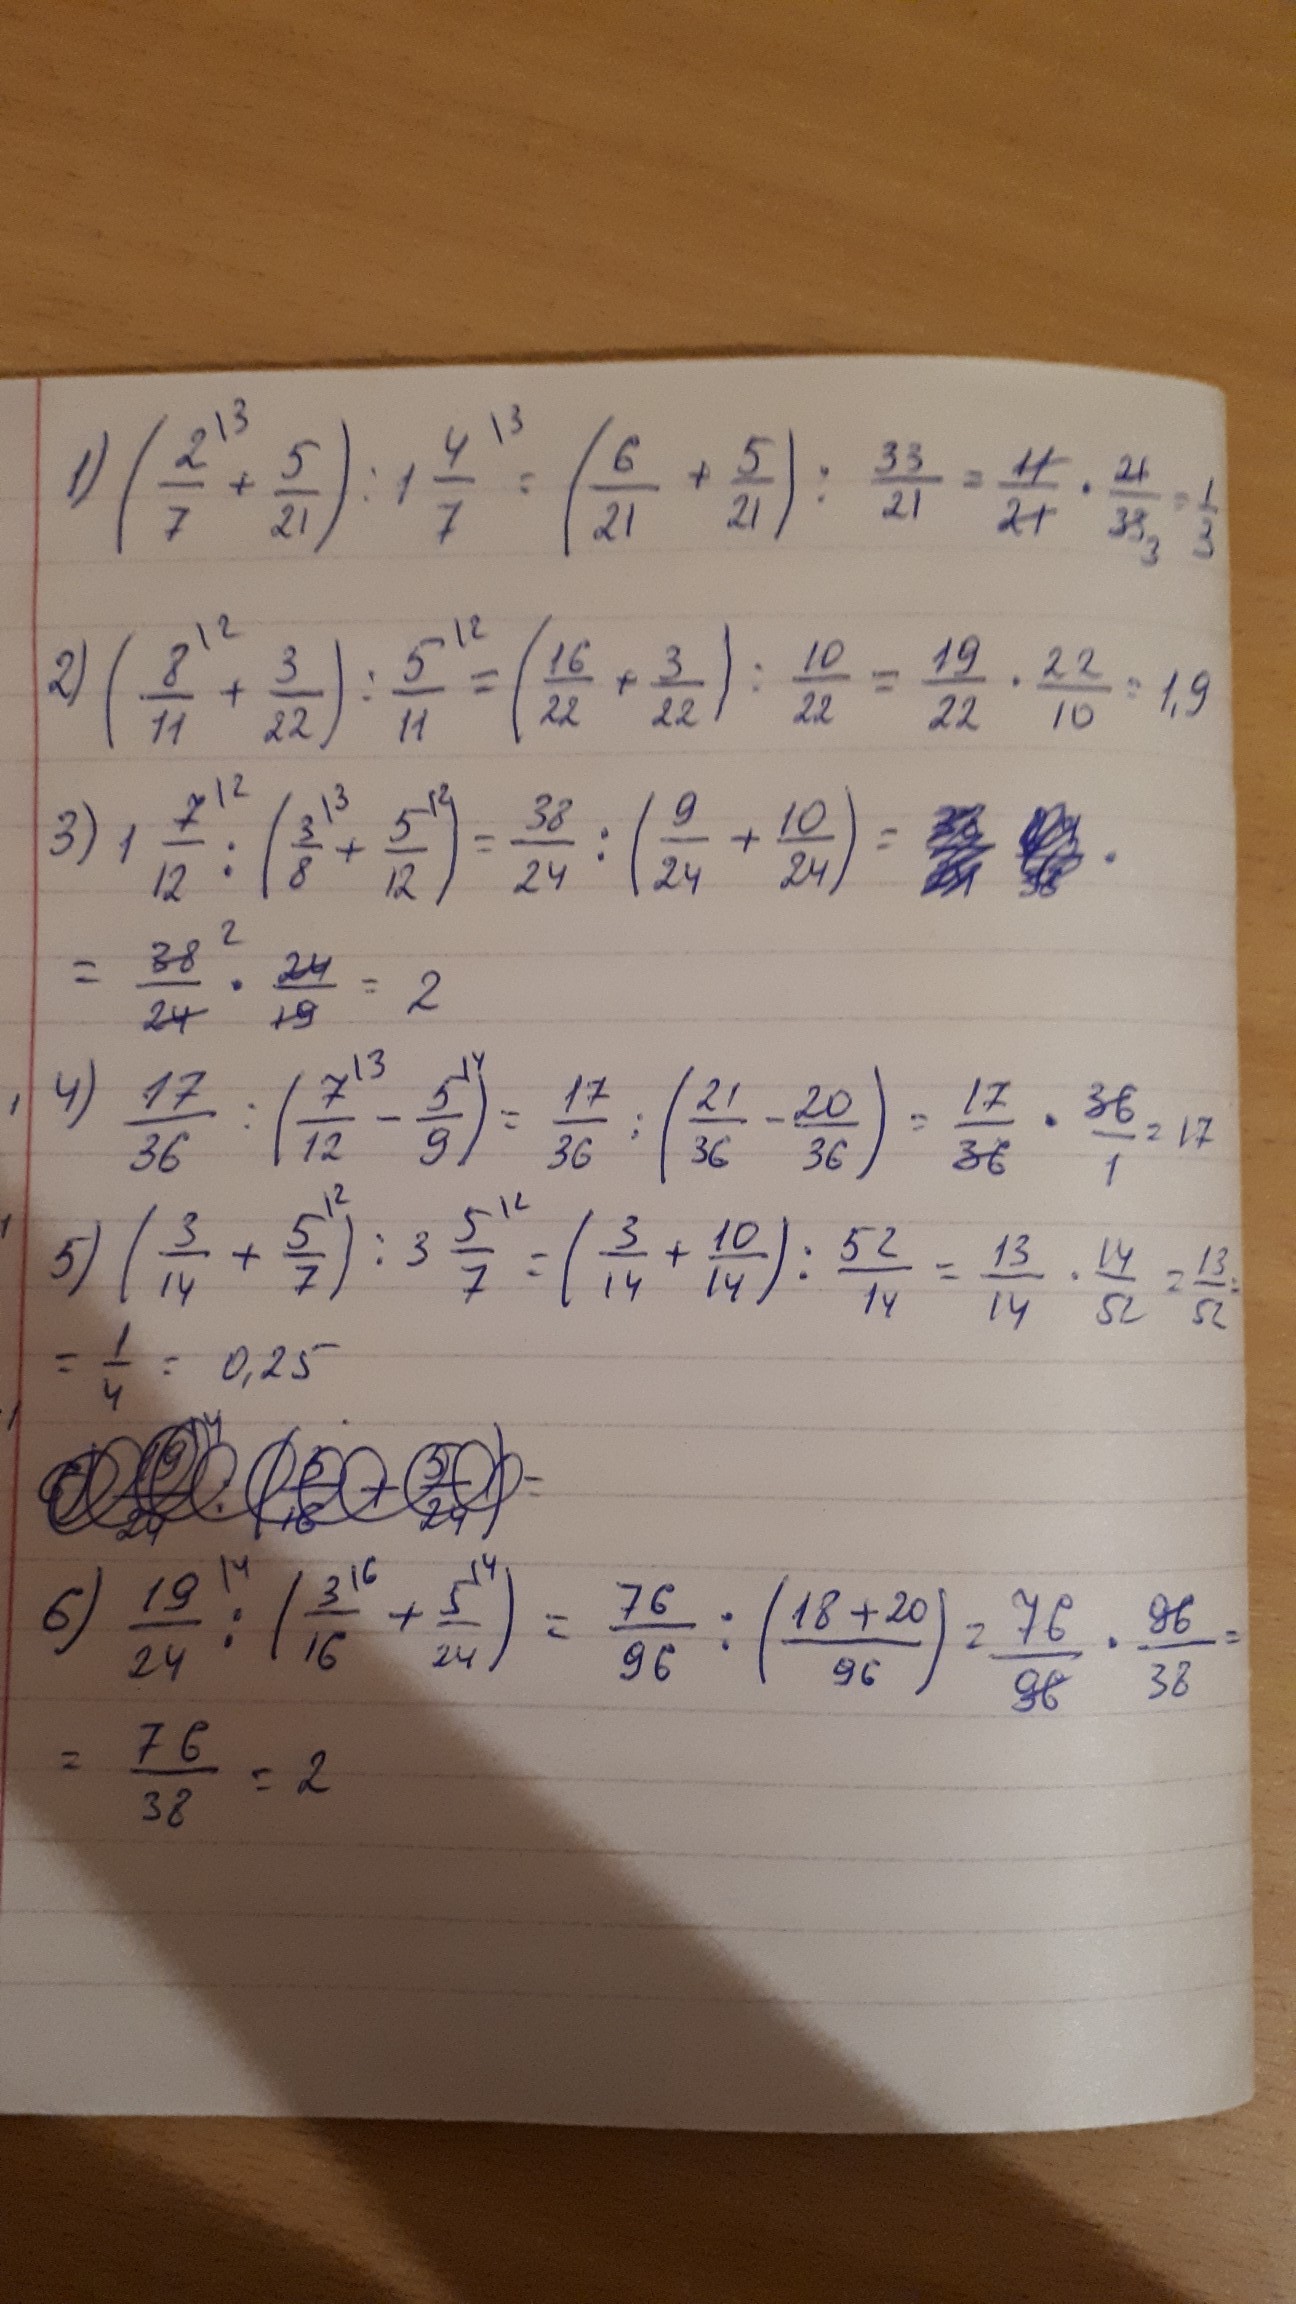 1) (2/7 \3 + 5/21) : 1 4/7 \3 = (6/21 + 5/21) : 33/21 = 11/21 · 21/33 3 = 1/3
2) (8/11 \2 + 3/22) : 5/11 \2 = (16/22 + 3/22) : 10/22 = 19/22 · 22/10 = 1,9
3) 1 7/12 \2 : (3/8 \3 + 5/12 \2) = 38/24 : (9/24 + 10/24) =
= 38/24 2 · 24/19 = 2
4) 17/36 : (7/12 \3 - 5/9 \4) = 17/36 : (21/36 - 20/36) = 17/36 · 36/1 = 17
5) (3/14 + 5/7 \2) : 3 5/7 \2 = (3/14 + 10/14) : 52/14 = 13/14 · 14/52 = 13/52 =
= 1/4 = 0,25
6) 19/24 \4 : (3/16 \6 + 5/24 \4) = 76/96 : (18+20/96) = 76/96 · 96/38 =
= 76/38 = 2